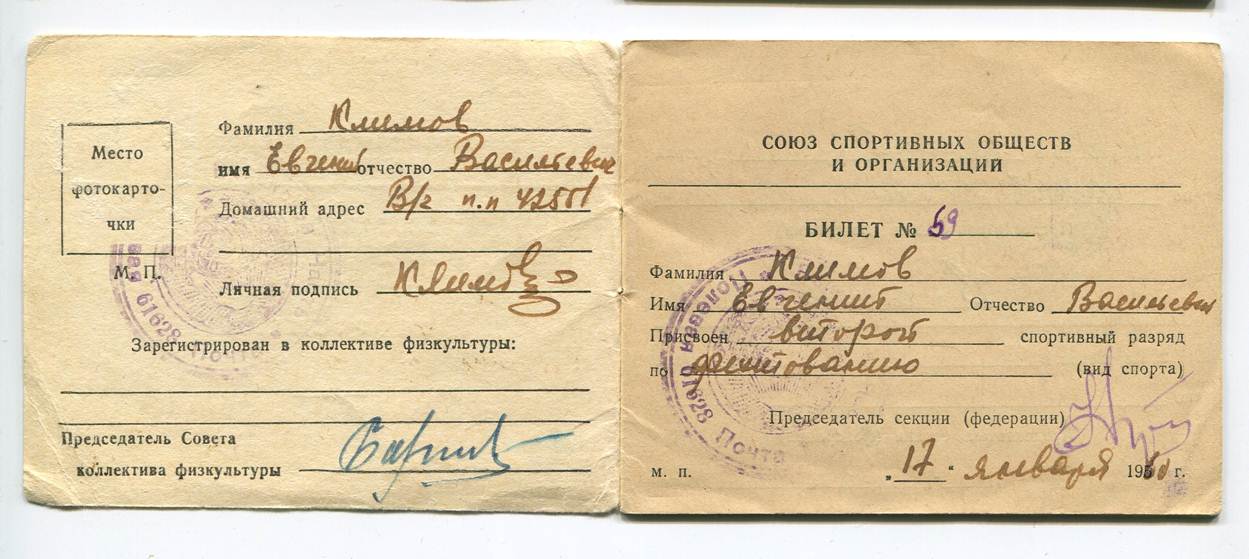 Место
фотокарто-
чки
М. П.
Фамилия Климов
имя Евгений отчество Васильевич
Домашний адрес В/г п.п 42551
Личная подпись Климов
Зарегистрирован в коллективе физкультуры:
Председатель Совета
коллектива физкультуры
Полевая Почта
61628
СОЮЗ СПОРТИВНЫХ ОБЩЕСТВ
И ОРГАНИЗАЦИЙ
БИЛЕТ № 59
Фамилия Климов
Имя Евгений Отчество Васильевич
Присвоен второй спортивный разряд
по фехтованию (вид спорта)
Председатель секции (федерации)
м. п. „17“ января 1960 г.
Полевая Почта
61628